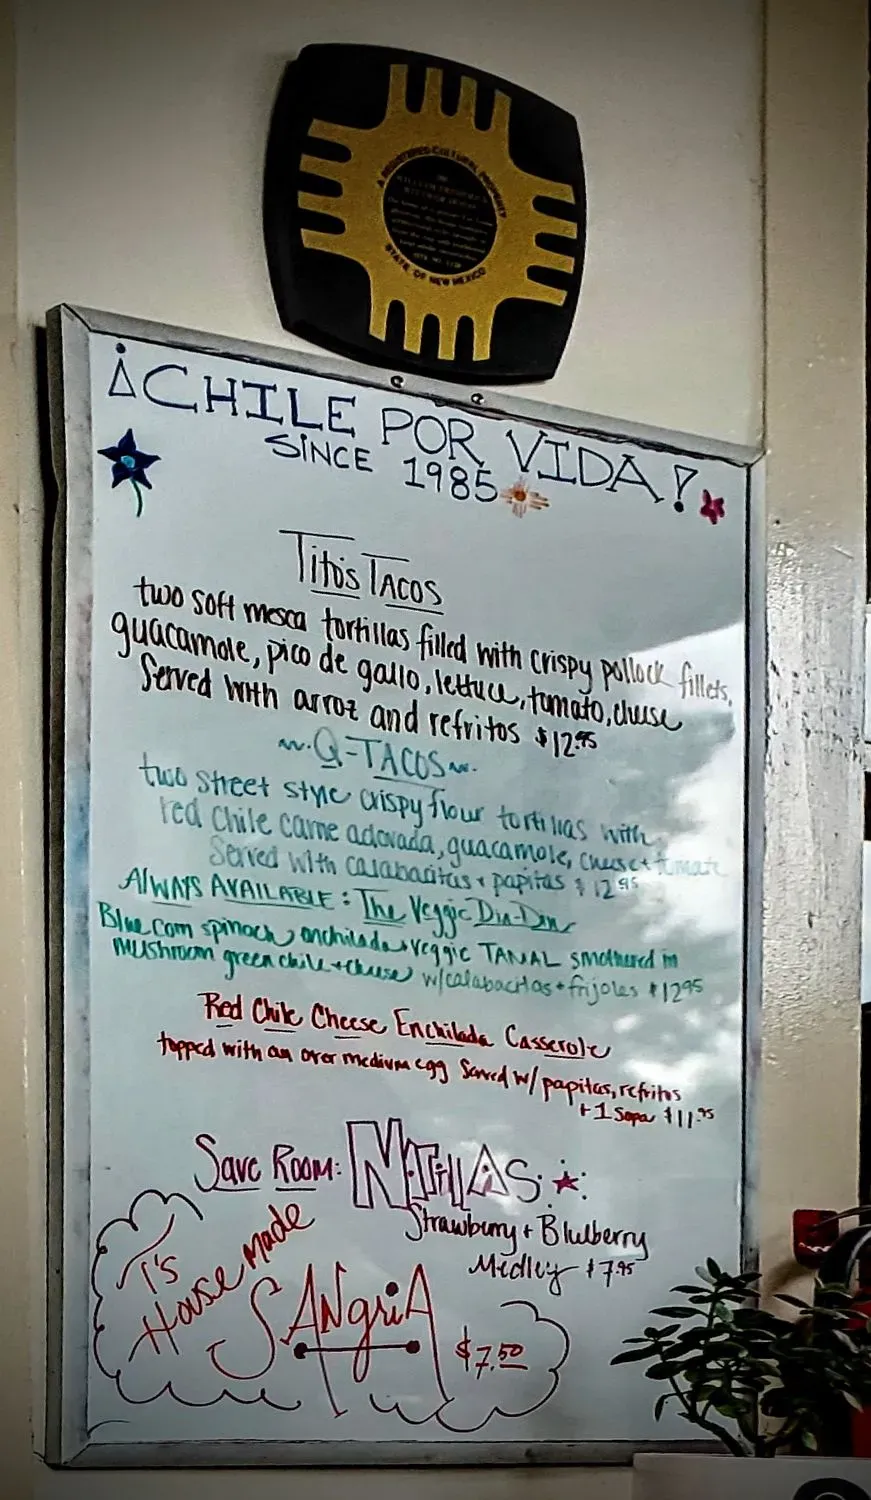 A REGISTERED CULTURAL PROPERTY
STATE OF NEW MEXICO
¡CHILE POR VIDA!
SINCE 1985
Tito's TACOS
two soft mesca tortillas filled with crispy pollock fillets,
guacamole, pico de gallo, lettuce, tomato, cheese
Served with arroz and refritos $12.95
Q-TACOS
two street style crispy flour tortillas with
red chile carne adovada, guacamole, cheese + tomato
Served with calabacitas + papitas $12.95
ALWAYS AVAILABLE: The Veggie Din-Din
Blue corn spinach enchilada + veggie TAMAL smothered in
mushroom green chile + cheese w/calabacitas + frijoles $12.95
Red Chile Cheese Enchilada Casserole
topped with an over medium egg Served w/ papitas, refritos
+ 1 Sopa $11.95
Save Room: NATillAS
Strawberry + Blueberry
Medley $7.95
T's
House made
SANgriA
$7.50